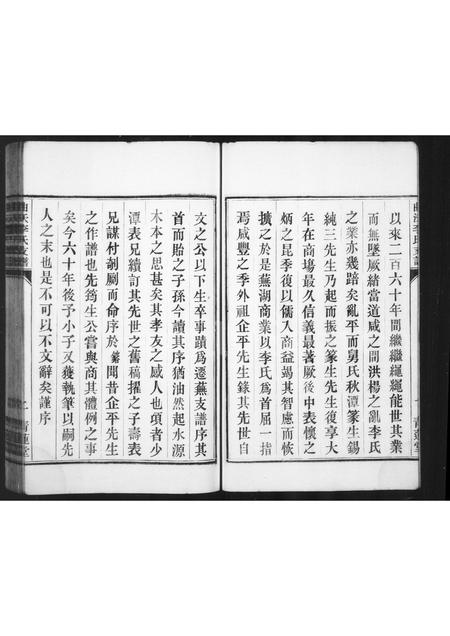 以來二百六十年間繼繼繩繩能世其業
而無墜厥緒當道咸之間洪楊之亂李氏
之業亦幾踣矣亂平而舅氏秋潭篆生錫
純三先生乃起而振之篆生先生復享大
年在商場最久信義最著厥後中表懷之
炳之昆季復以儒入商益竭其智慮而恢
擴之於是蕪湖商業以李氏爲首屈一指
焉咸豐之季外祖企平先生錄其先世自
文之公以下生卒事蹟爲遷蕪支譜序其
首而貽之子孫今讀其序猶油然起水源
木本之思甚矣其孝友之感人也頃者少
潭表弟續訂其先世之舊稿擢之子壽表
兄謀付剞劂而命序於 聞昔企平先生
之作譜也先筠生公嘗與商其體例之事
矣今六十年後予小子又獲執筆以嗣先
人之末也是不可以不文辭矣謹序
李氏支譜
二
青蓮堂